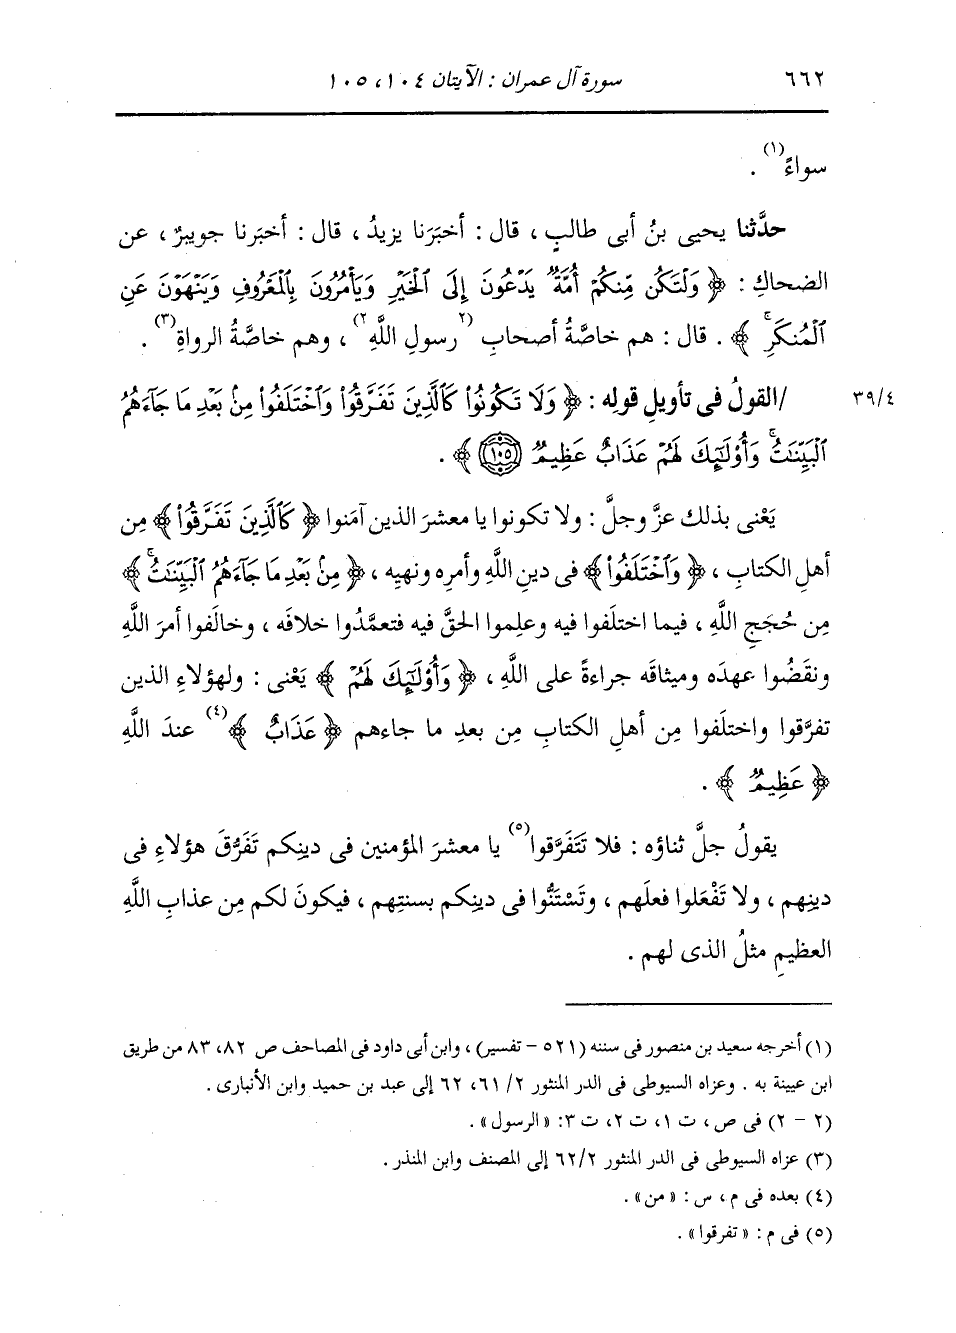 ٦٦٢ سورة آل عمران : الآيتان ١٠٤، ١٠٥
سواءً(١) .
حدَّثنا يحيى بنُ أبى طالبٍ ، قال : أخبَرَنا يزيدُ ، قال : أخبَرنا جويبرٌ ، عن
الضحاكِ : ﴿ وَلْتَكُن مِّنكُمْ أُمَّةٌ يَدْعُونَ إِلَى ٱلْخَيْرِ وَيَأْمُرُونَ بِٱلْمَعْرُوفِ وَيَنْهَوْنَ عَنِ
ٱلْمُنكَرِۚ ﴾ . قال : هم خاصَّةُ أصحابِ (٢رسولِ اللَّهِ٢) ، وهم خاصَّةُ الرواةِ(٣) .
/القولُ فى تأويلِ قولِه : ﴿ وَلَا تَكُونُوا۟ كَٱلَّذِينَ تَفَرَّقُوا۟ وَٱخْتَلَفُوا۟ مِنۢ بَعْدِ مَا جَآءَهُمُ ٣٩/٤
ٱلْبَيِّنَـٰتُۚ وَأُو۟لَـٰٓئِكَ لَهُمْ عَذَابٌ عَظِيمٌ ١٠٥ ﴾ .
يَعْنى بذلك عزَّ وجلَّ : ولا تكونوا يا معشرَ الذين آمَنوا ﴿ كَٱلَّذِينَ تَفَرَّقُوا۟ ﴾ مِن
أهلِ الكتابِ ، ﴿ وَٱخْتَلَفُوا۟ ﴾ فى دينِ اللَّهِ وأمرِه ونهيِه ، ﴿ مِنۢ بَعْدِ مَا جَآءَهُمُ ٱلْبَيِّنَـٰتُۚ ﴾
مِن حُجَجِ اللَّهِ ، فيما اختلَفوا فيه وعلِموا الحقَّ فيه فتعمَّدُوا خلافَه ، وخالَفوا أمرَ اللَّهِ
ونقَضُوا عهدَه وميثاقَه جراءةً على اللَّهِ ، ﴿ وَأُو۟لَـٰٓئِكَ لَهُمْ ﴾ يَعْنى : ولهؤلاءِ الذين
تفرَّقوا واختلَفوا مِن أهلِ الكتابِ مِن بعدِ ما جاءهم ﴿ عَذَابٌ ﴾(٤) عندَ اللَّهِ
﴿ عَظِيمٌ ﴾ .
يقولُ جلَّ ثناؤه : فلا تَتَفَرَّقوا(٥) يا معشرَ المؤمنين فى دينِكم تَفَرُّقَ هؤلاءِ فى
دينِهم ، ولا تَفْعَلوا فعلَهم ، وتَسْتَنُّوا فى دينِكم بسنتِهم ، فيكونَ لكم مِن عذابِ اللَّهِ
العظيمِ مثلُ الذى لهم .
(١) أخرجه سعيد بن منصور فى سننه (٥٢١ - تفسير) ، وابن أبى داود فى المصاحف ص ٨٢، ٨٣ من طريق
ابن عيينة به . وعزاه السيوطى فى الدر المنثور ٢/ ٦١، ٦٢ إلى عبد بن حميد وابن الأنبارى .
(٢ - ٢) فى ص، ت ١، ت ٢، ت ٣: « الرسول » .
(٣) عزاه السيوطى فى الدر المنثور ٦٢/٢ إلى المصنف وابن المنذر .
(٤) بعده فى م ، س : « من » .
(٥) فى م : « تفرقوا » .